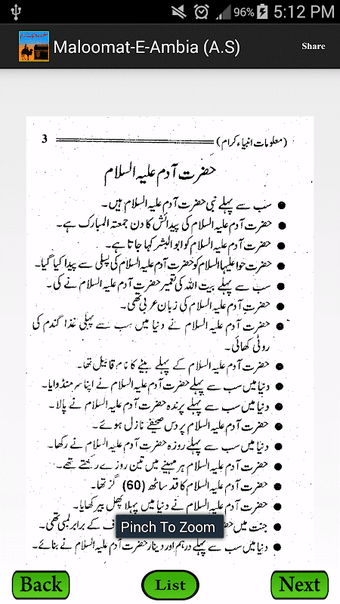 96% 5:12 PM
Maloomat-E-Ambia (A.S) Share
3 (معلومات انبیاء کرام)
حضرت آدم علیہ السلام
سب سے پہلے نبی حضرت آدم علیہ السلام ہیں۔
حضرت آدم علیہ السلام کی پیدائش کا دن جمعتہ المبارک ہے۔
حضرت آدم علیہ السلام کو ابو البشر کہا جاتا ہے۔
حضرت حوا علیہا السلام کو حضرت آدم علیہ السلام کی پسلی سے پیدا کیا گیا۔
سب سے پہلے بیت اللہ کی تعمیر حضرت آدم علیہ السلام نے کی۔
حضرت آدم علیہ السلام کی زبان عربی تھی۔
حضرت آدم علیہ السلام نے دنیا میں سب سے پہلی غذا گندم کی
روٹی کھائی۔
حضرت آدم علیہ السلام کے پہلے بیٹے کا نام قابیل تھا۔
دنیا میں سب سے پہلے حضرت آدم علیہ السلام نے اپنا سر منڈوایا۔
دنیا میں سب سے پہلے پرندہ حضرت آدم علیہ السلام نے پالا۔
حضرت آدم علیہ السلام پر دس صحیفے نازل ہوئے۔
دنیا میں سب سے پہلے روزہ حضرت آدم علیہ السلام نے رکھا۔
حضرت آدم علیہ السلام ہر مہینے میں تین روزے رکھتے تھے۔
حضرت آدم علیہ السلام کا قد ساٹھ (60) گز تھا۔
حضرت آدم علیہ السلام نے دنیا میں پہلا پھل بیر کھایا۔
جنت میں حضرت ف کے برابر لمبی تھی۔
Pinch To Zoom
دنیا میں سب سے پہلے درہم اور دینار حضرت آدم علیہ السلام نے بنائے۔
Back List Next